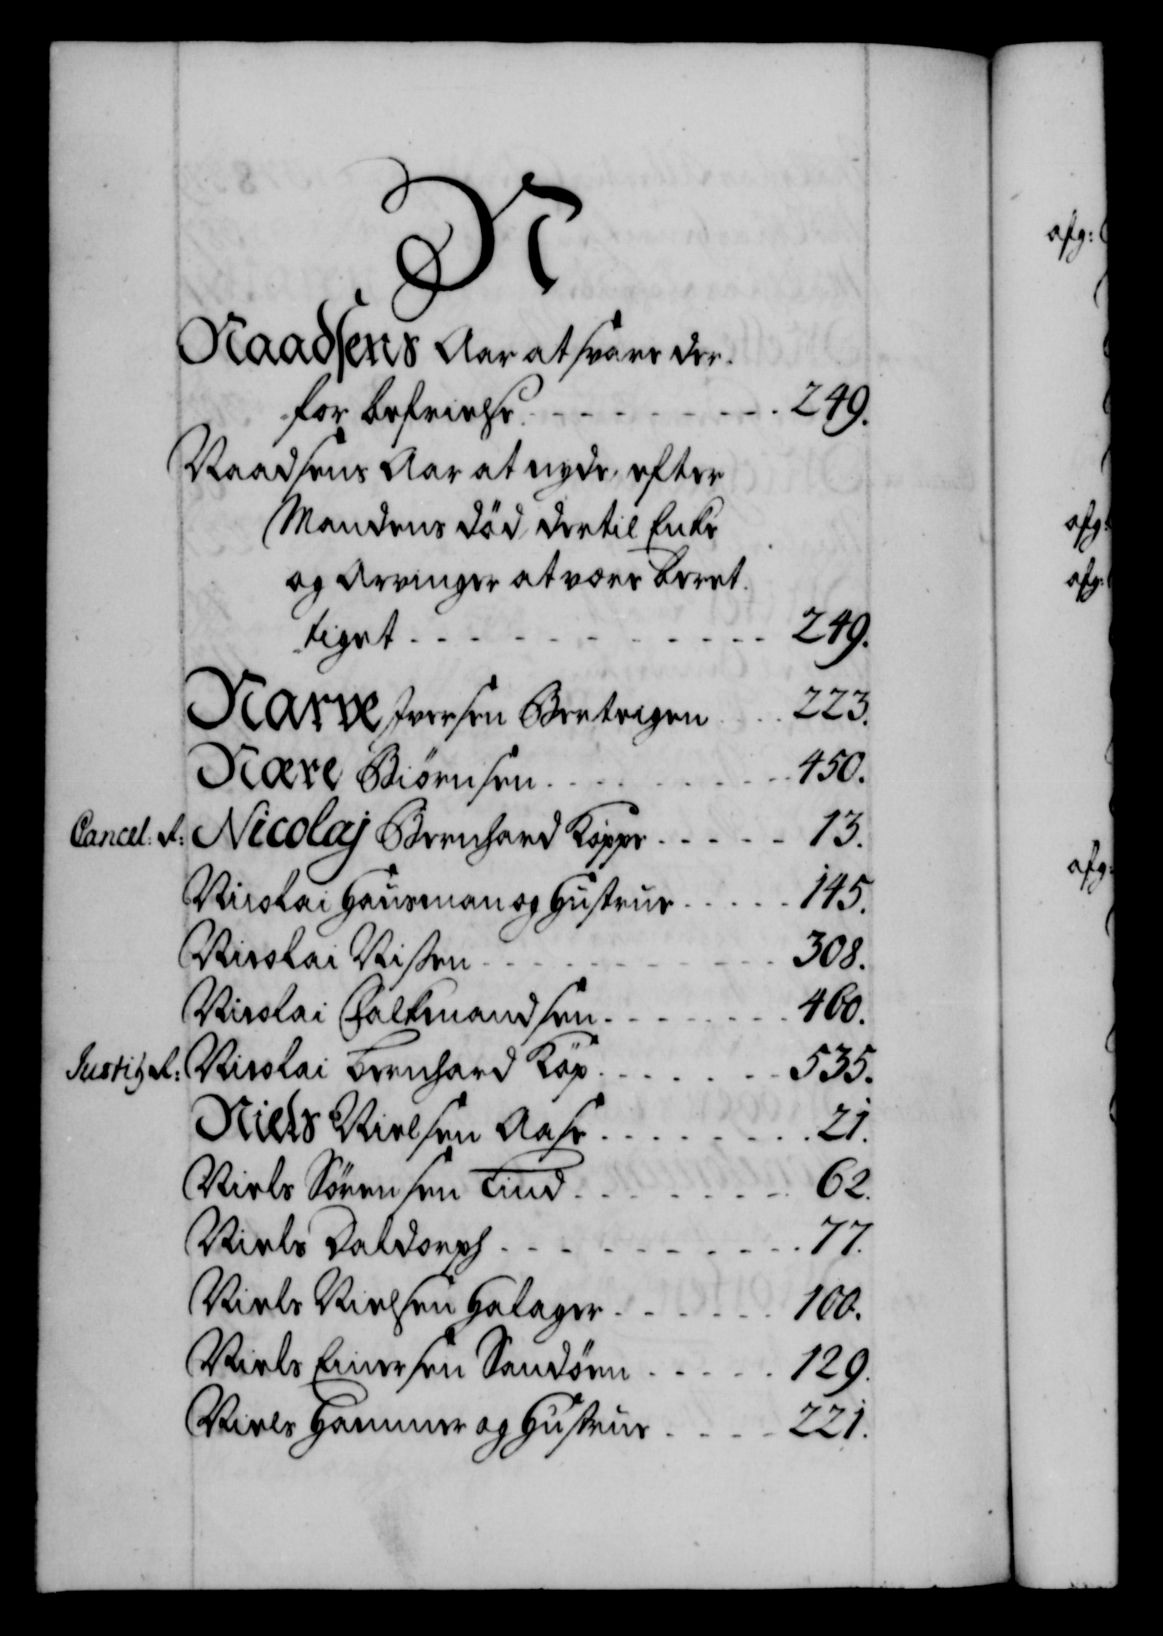 N
Naadsens Aar at svare der-
for befrielse. 249.
Naadsens Aar at nyde, efter
Mandens Død, dertil Enke
og Arvinger at være beret-
tiget 249.
Narve Iversen Bretvigen 223.
Nære Biörnsen 450.
Cancel: R: Nicolaj Bernhard Köppe 13.
Nicolai Hausman og Hustrue 145.
Nicolai Nissen 308.
Nicolai Falkmandsen 460.
Justitz R: Nicolai Bernhard Köp 535.
Niels Nielsen Aase 21.
Niels Sörensen Lind 62.
Niels Daldorph 77.
Niels Nielsen Halager 100.
Niels Einersen Sandöen 129.
Niels Hammer og Hustrue 221.
afg:
afg:
afg:
afg: